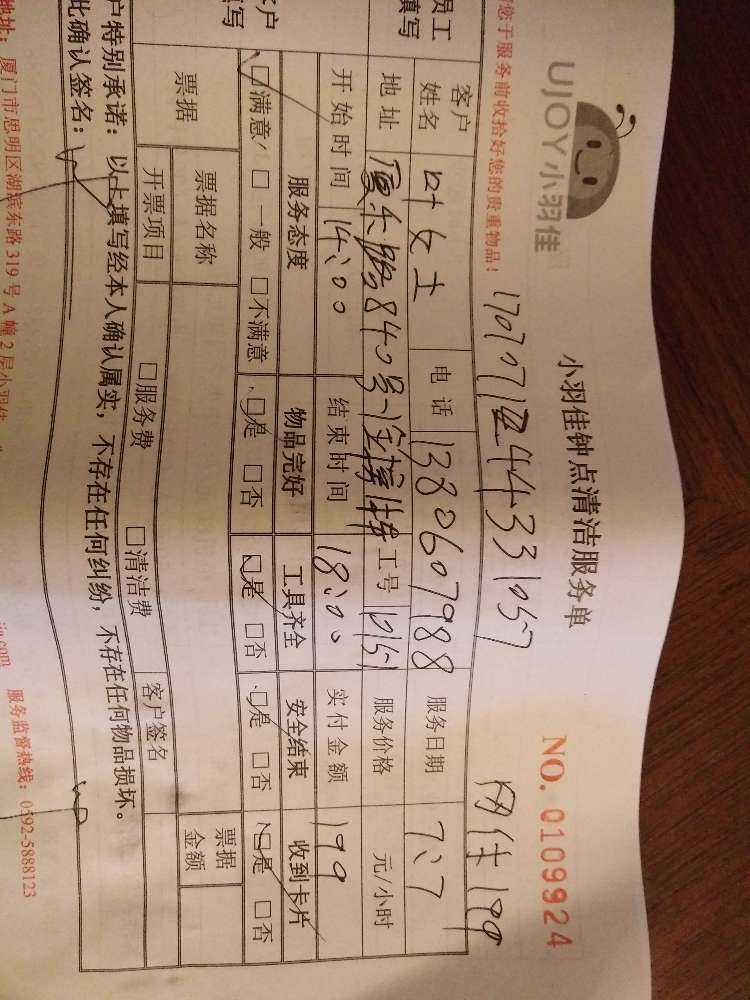 UJOY小羽佳
小羽佳钟点清洁服务单
NO. 0109924
您于服务前收拾好您的贵重物品！
员工
填写
客户
姓名 叶女士 电话 服务日期 7:7
地址 工号 服务价格 元/小时
开始时间 14:00 结束时间 18:00 实付金额 199
客户
填写
服务态度 物品完好 工具齐全 安全结束 收到卡片
□满意 □一般 □不满意 □是 □否 □是 □否 □是 □否 □是 □否
票据 票据名称 票据金额
开票项目 □服务费 □清洁费 客户签名
户特别承诺：以上填写经本人确认属实，不存在任何纠纷，不存在任何物品损坏。
此确认签名：
地址：厦门市思明区湖滨东路319号A幢2层小羽佳 服务监督热线：0592-5888123